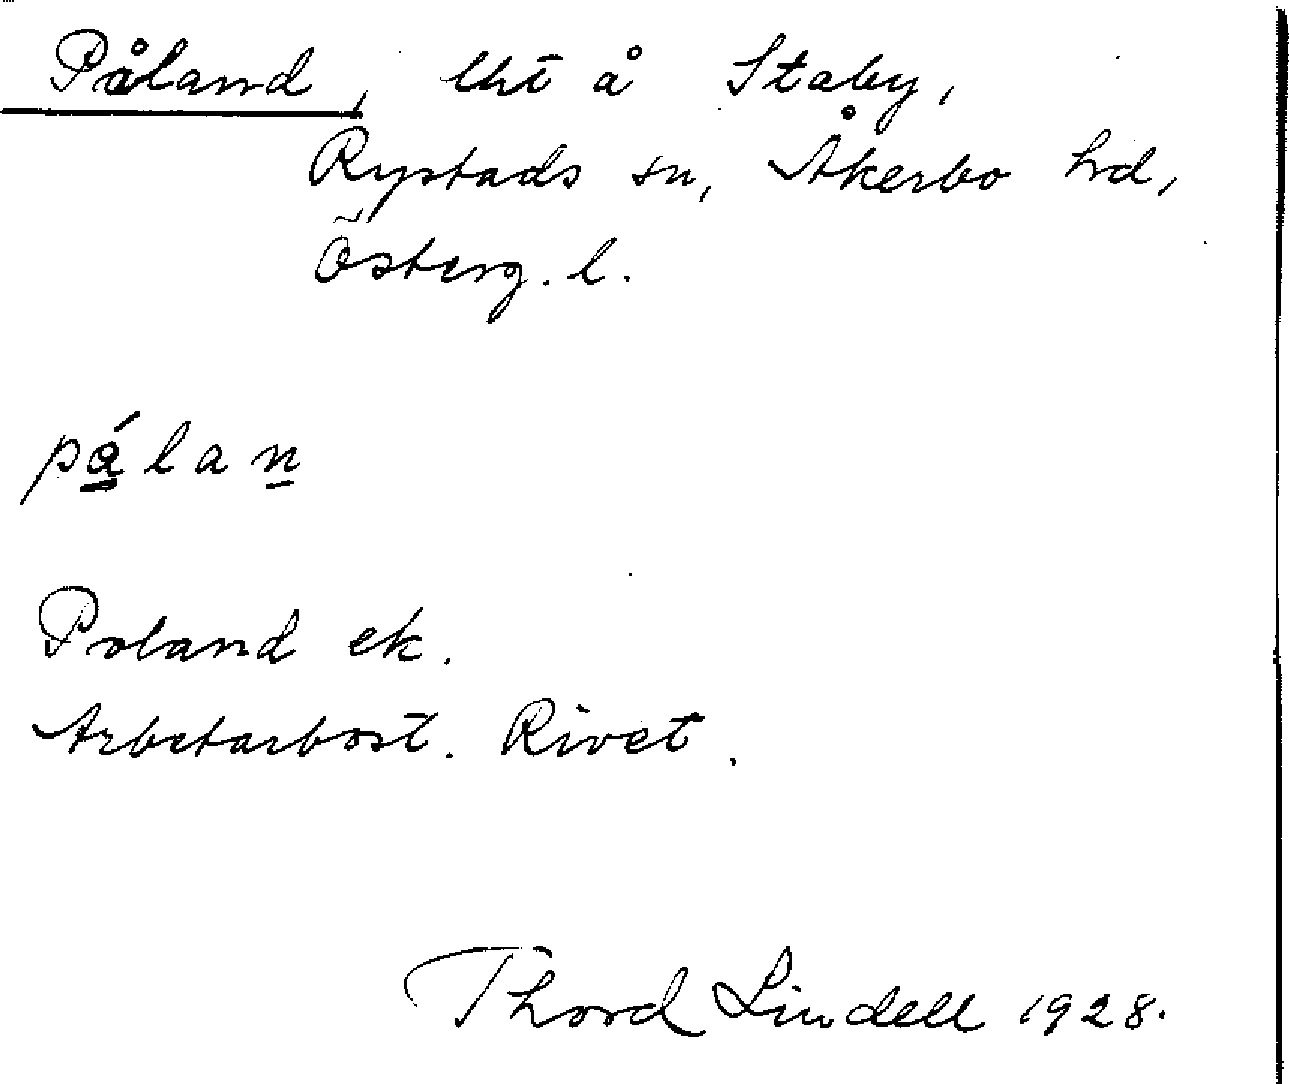 Påland, lht å Staby,
Rystads sn, Åkerbo hd,
Österg. l.
pálan
Poland ek.
Arbetarbost. Rivet.
Thord Lindell 1928.